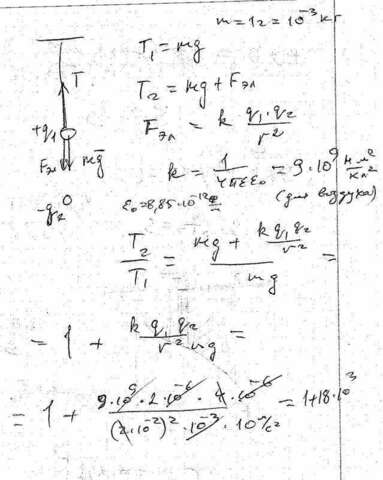 m = 1г = 10⁻³ кг
T₁ = mg
T
T₂ = mg + Fэл
+q₁
Fэл = k q₁·q₂ / r²
Fэл mg
k = 1 / 4πεε₀ = 9·10⁹ Н·м² / Кл²
-q₂
ε₀ = 8,85·10⁻¹² Ф/м
(для воздуха)
T₂ / T₁ = (mg + kq₁q₂ / r²) / mg =
= 1 + k q₁ q₂ / r² mg =
= 1 + 9·10⁹·2·10⁻⁶·4·10⁻⁶ / (2·10⁻²)²·10⁻³·10 м/с² = 1+18·10³